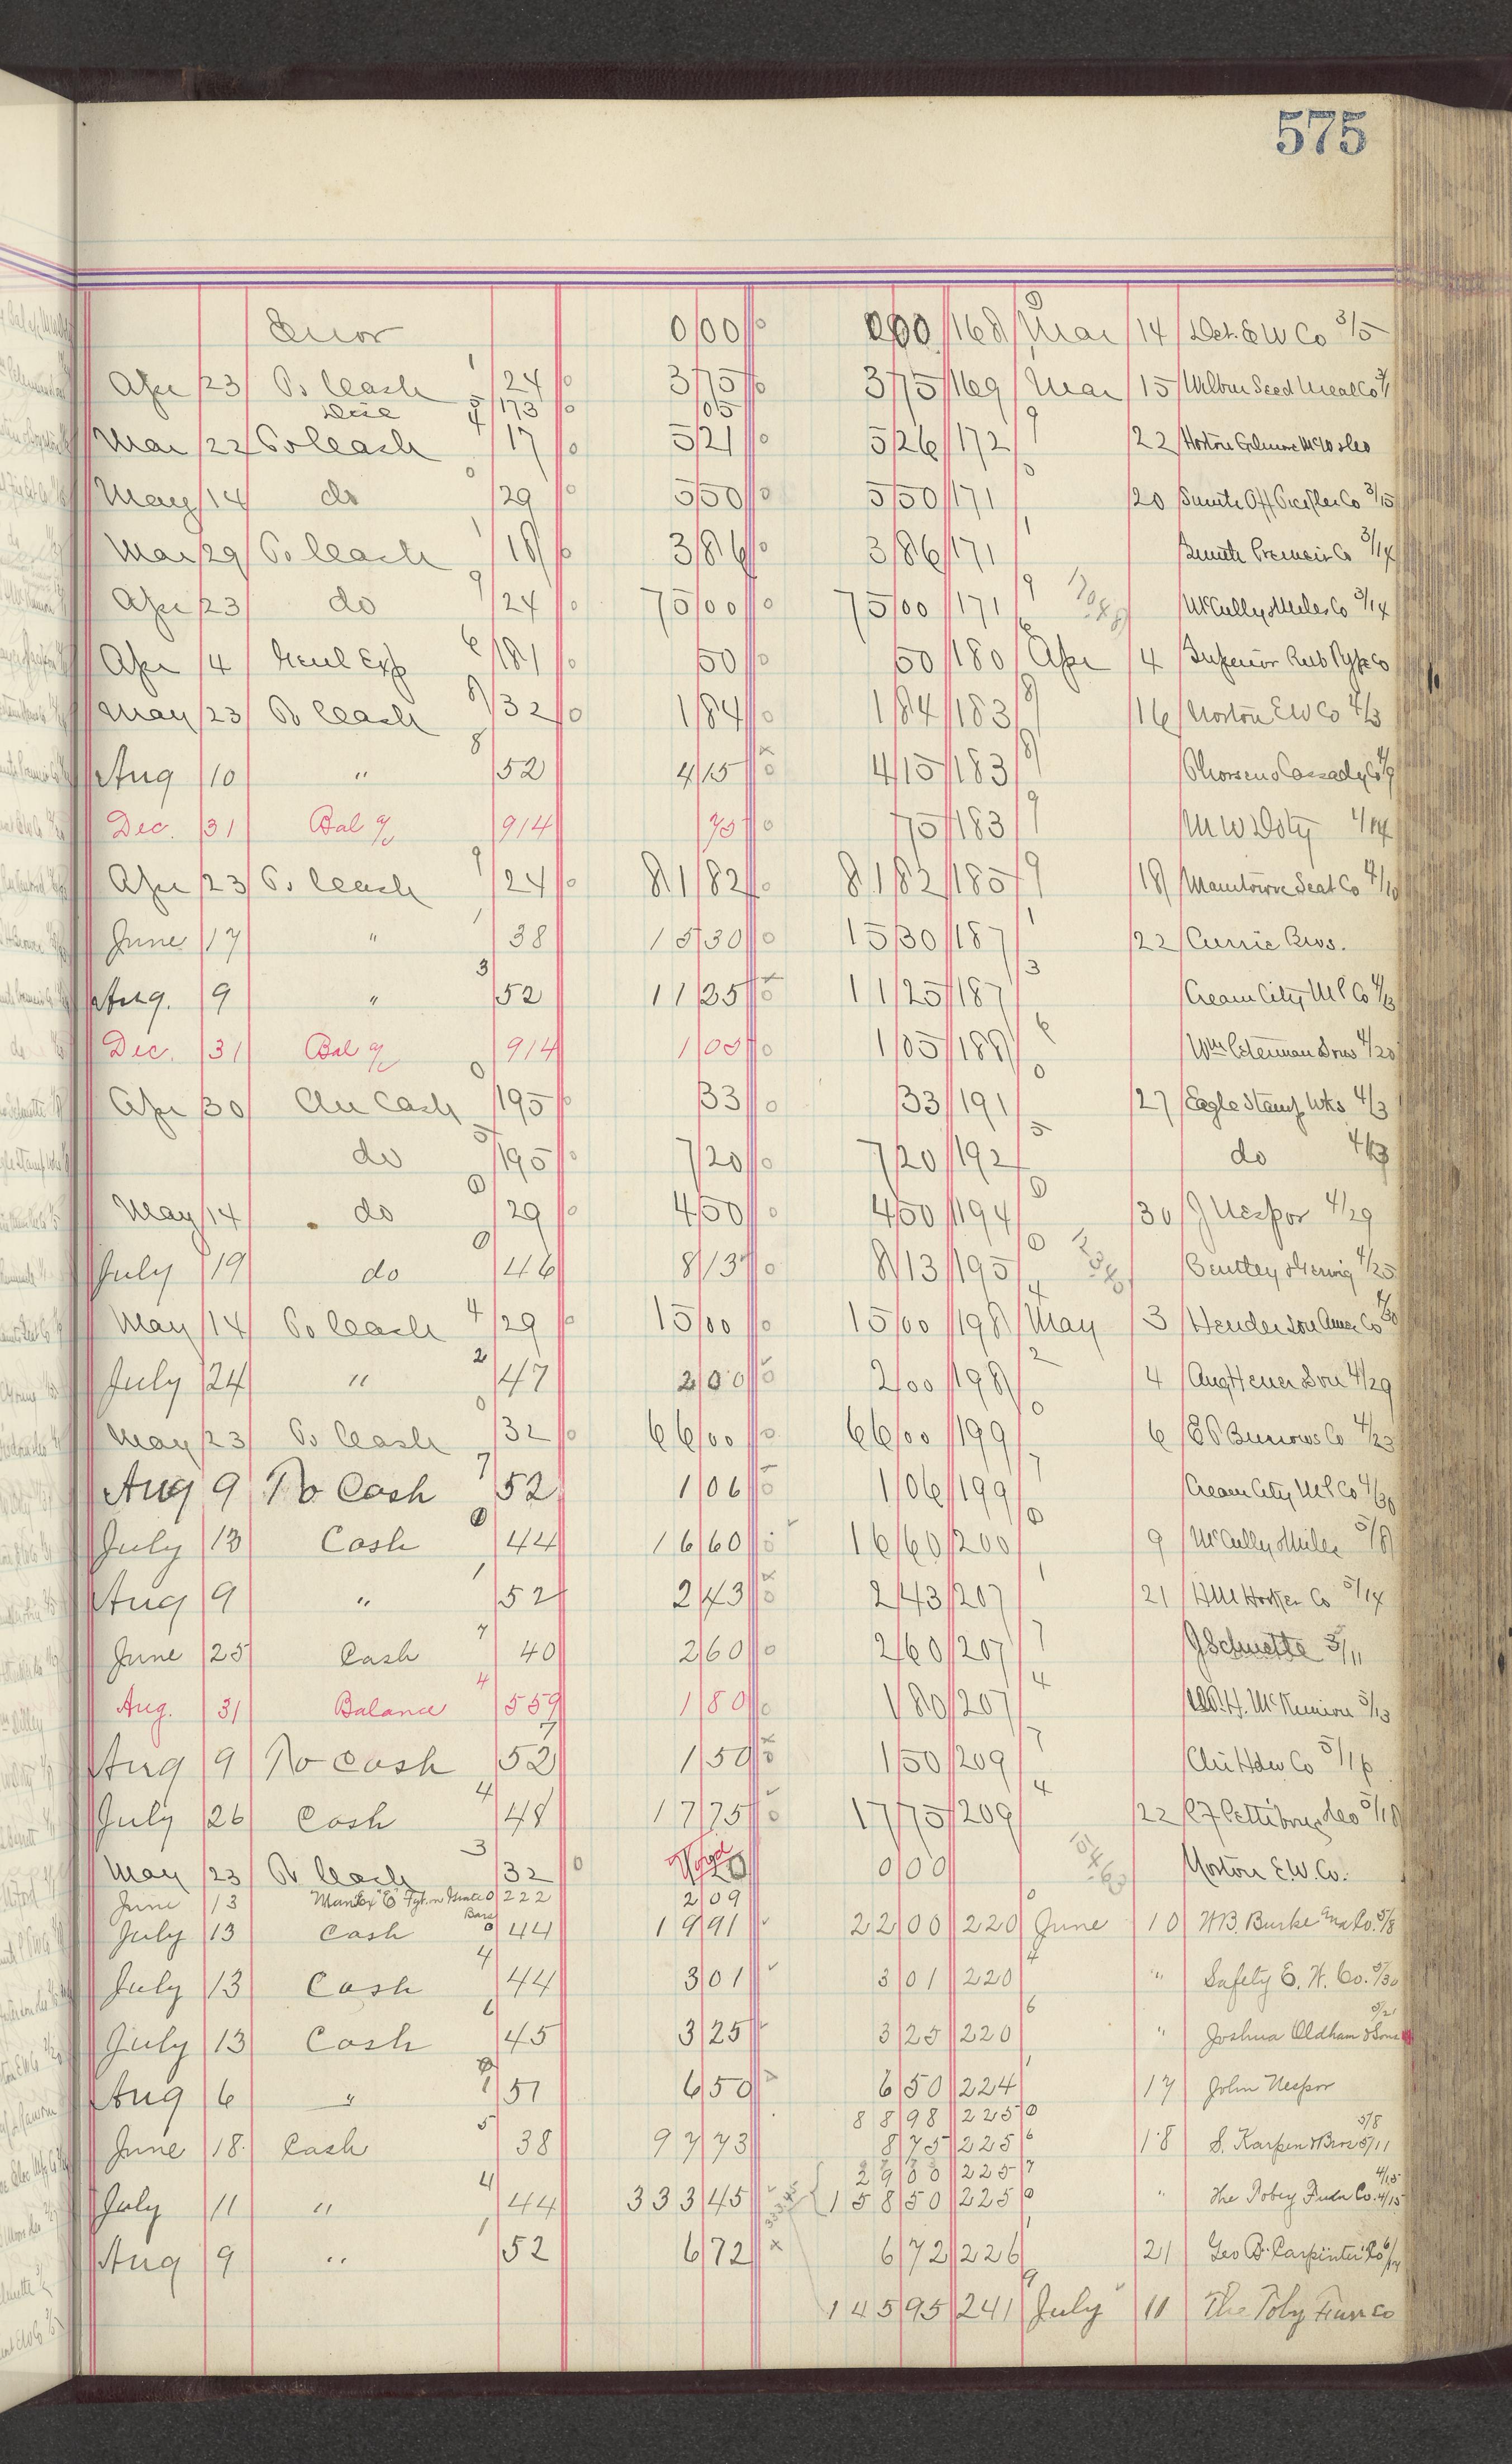 575
Error 0 00 0 00 168 Mar 14 Det. E W Co 3/5
Apr 23 To Cash 24 3 75 3 75 169 Mar 15 Wilbur Seed Meal Co
Disc 173 05
Mar 22 To Cash 17 5 21 5 26 172 22 Horton Gilmore McW & Co
May 14 do 29 5 50 5 50 171 20 Smith Off Co 3/15
Mar 29 To Cash 18 3 86 3 86 171 Smith Premier Co 3/14
Apr 23 do 24 75 00 75 00 171 McCully & Miles Co 3/14
Apr 4 Genl Exp 181 50 50 180 Apr 4 Superior Rub Type Co
May 23 To Cash 32 1 84 1 84 183 16 Norton E W Co 4/3
Aug 10 " 52 4 15 4 15 183 Thorsen & Cassady Co 4/9
Dec. 31 Bal 914 75 75 183 M W Doty 4/14
Apr 23 To Cash 24 81 82 81 82 185 18 Manitowoc Seat Co 4/10
June 17 " 38 15 30 15 30 187 22 Currie Bros.
Aug. 9 " 52 11 25 11 25 187 Cream City M P Co 4/13
Dec. 31 Bal 914 1 05 1 05 188 Wm Esterman Sons 4/20
Apr 30 Chi Cash 195 33 33 191 27 Eagle Stamp Wks 4/3
do 195 7 20 7 20 192 do 4/3
May 14 do 29 4 50 4 50 194 30 J Nespor 4/29
July 19 do 46 8 13 8 13 195 Bentley & Gerwig 4/25
May 14 To Cash 29 15 00 15 00 198 May 3 Henderson Ames Co 4/30
July 24 " 47 2 00 2 00 198 4 Aug Heuer & Son 4/29
May 23 To Cash 32 66 00 66 00 199 6 E P Burrows Co 4/23
Aug 9 To Cash 52 1 06 1 06 199 Cream City M P Co 4/30
July 13 Cash 44 16 60 16 60 200 9 McCully & Miles 5/8
Aug 9 " 52 2 43 2 43 207 21 H M Hooker Co 5/14
June 25 Cash 40 2 60 2 60 207 J Schuette 5/11
Aug. 31 Balance 559 1 80 1 80 207 W. H. McKinnion 5/13
Aug 9 To Cash 52 1 50 1 50 209 Chi Hdw Co 5/16
July 26 Cash 48 17 75 17 75 209 22 C F Pettibone & Co 5/18
May 23 To Cash 32 Void 0 00 Norton E.W. Co.
June 13 222 2 09
July 13 Cash 44 19 91 22 00 220 June 10 W.B. Burke 5/8
July 13 Cash 44 3 01 3 01 220 " Safety E. W. Co. 5/30
July 13 Cash 45 3 25 3 25 220 " Joshua Oldham & Sons
Aug 6 " 51 6 50 6 50 224 17 John Nespor
88 98 225
June 18 Cash 38 97 73 8 75 225 18 S. Karpen & Bros 5/11
29 00 225
July 11 " 44 333 45 158 50 225 " The Tobey Furn Co. 4/15
Aug 9 " 52 6 72 6 72 226 21 Geo B. Carpenter Co
145 95 241 July 11 The Toby Furn Co